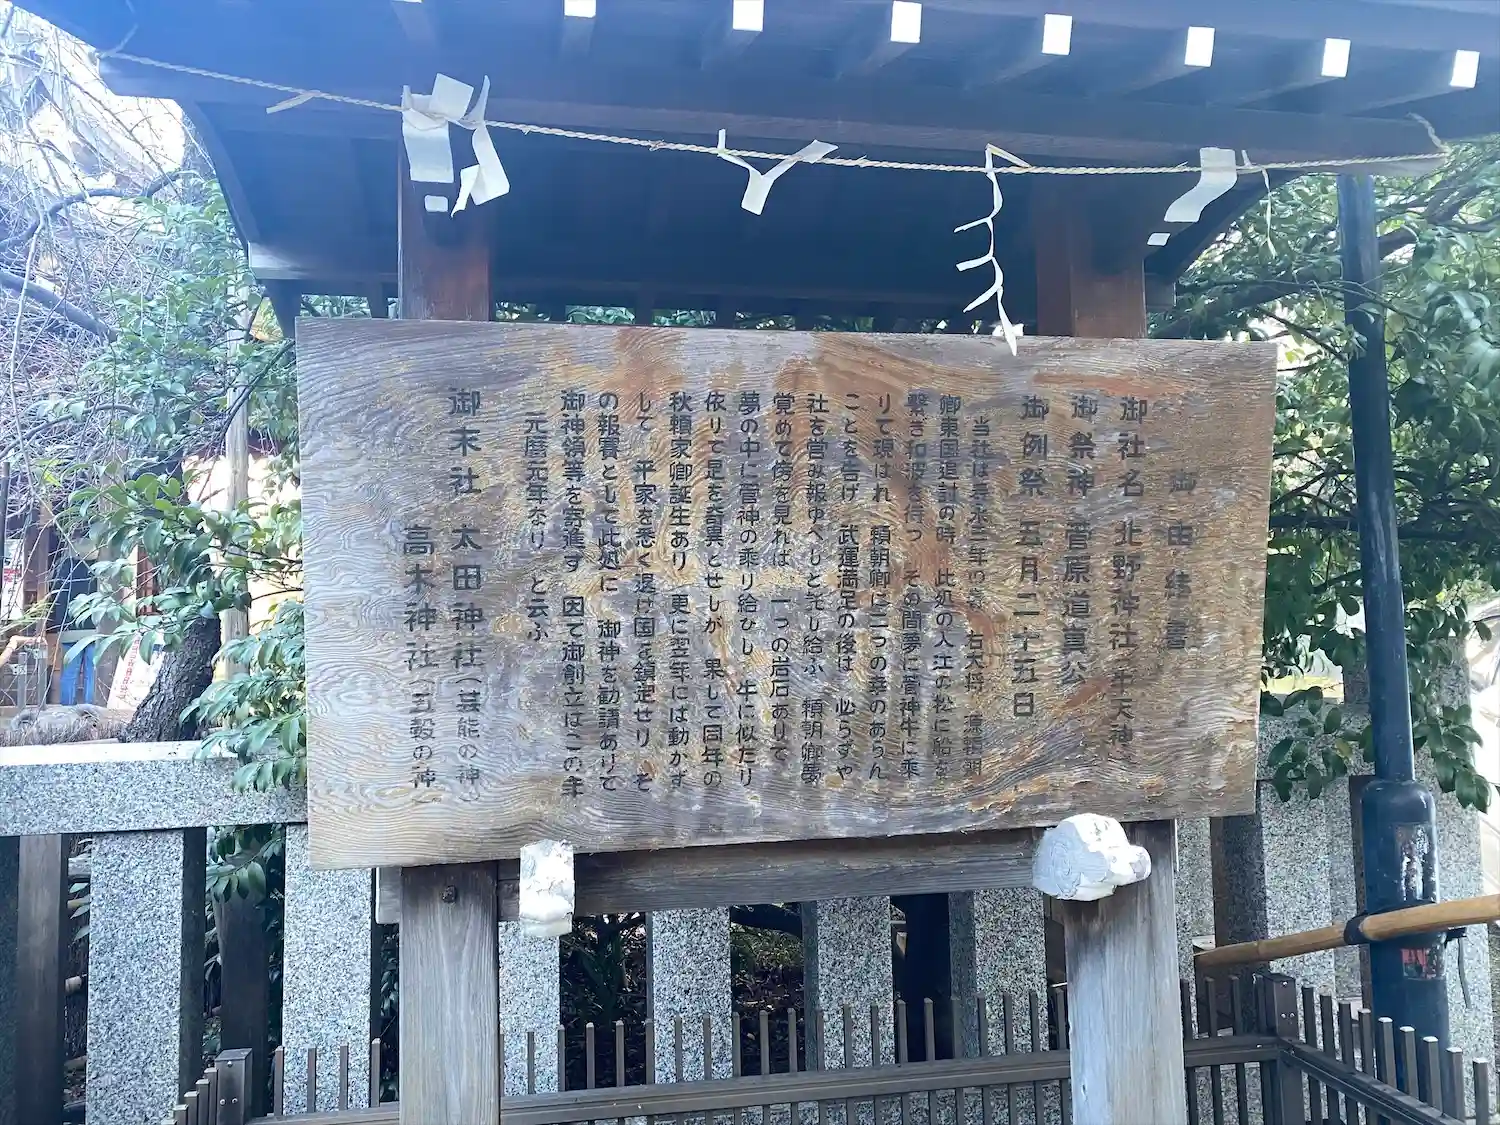 御由緒書
御社名 北野神社(牛天神)
御祭神 菅原道真公
御例祭 五月二十五日
当社は寿永三年の春 右大将 源頼朝
卿東国追討の時 此処の入江の松に船を
繋ぎ和波を待つ その間夢に菅神牛に乗
りて現はれ 頼朝卿に二つの幸のあらん
ことを告げ 武運満足の後は 必らずや
社を営み報ゆべしと託し給ふ 頼朝卿夢
覚めて傍を見れば、一つの岩石ありて
夢の中に菅神の乗り給ひし 牛に似たり
依りて是を奇異とせしが 果して同年の
秋頼家卿誕生あり 更に翌年には動かず
して 平家を悉く退け国を鎮定せり そ
の報賽として此処に 御神を勧請ありて
御神領等を寄進す 因て御創立はこの年
元暦元年なり と云ふ
御末社 太田神社(芸能の神)
高木神社(五穀の神)